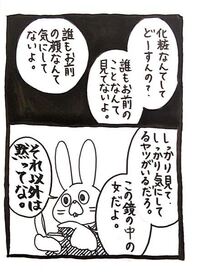 化粧なんてして
どーすんの?
誰もお前の
ことなんて
見てないよ。
誰もお前
の顔なんて
気にして
ないよ。
しっかり見て、
しっかり気にして
るヤツがいるだろ。
この鏡の中の
女だよ。
それ以外は
黙ってな。